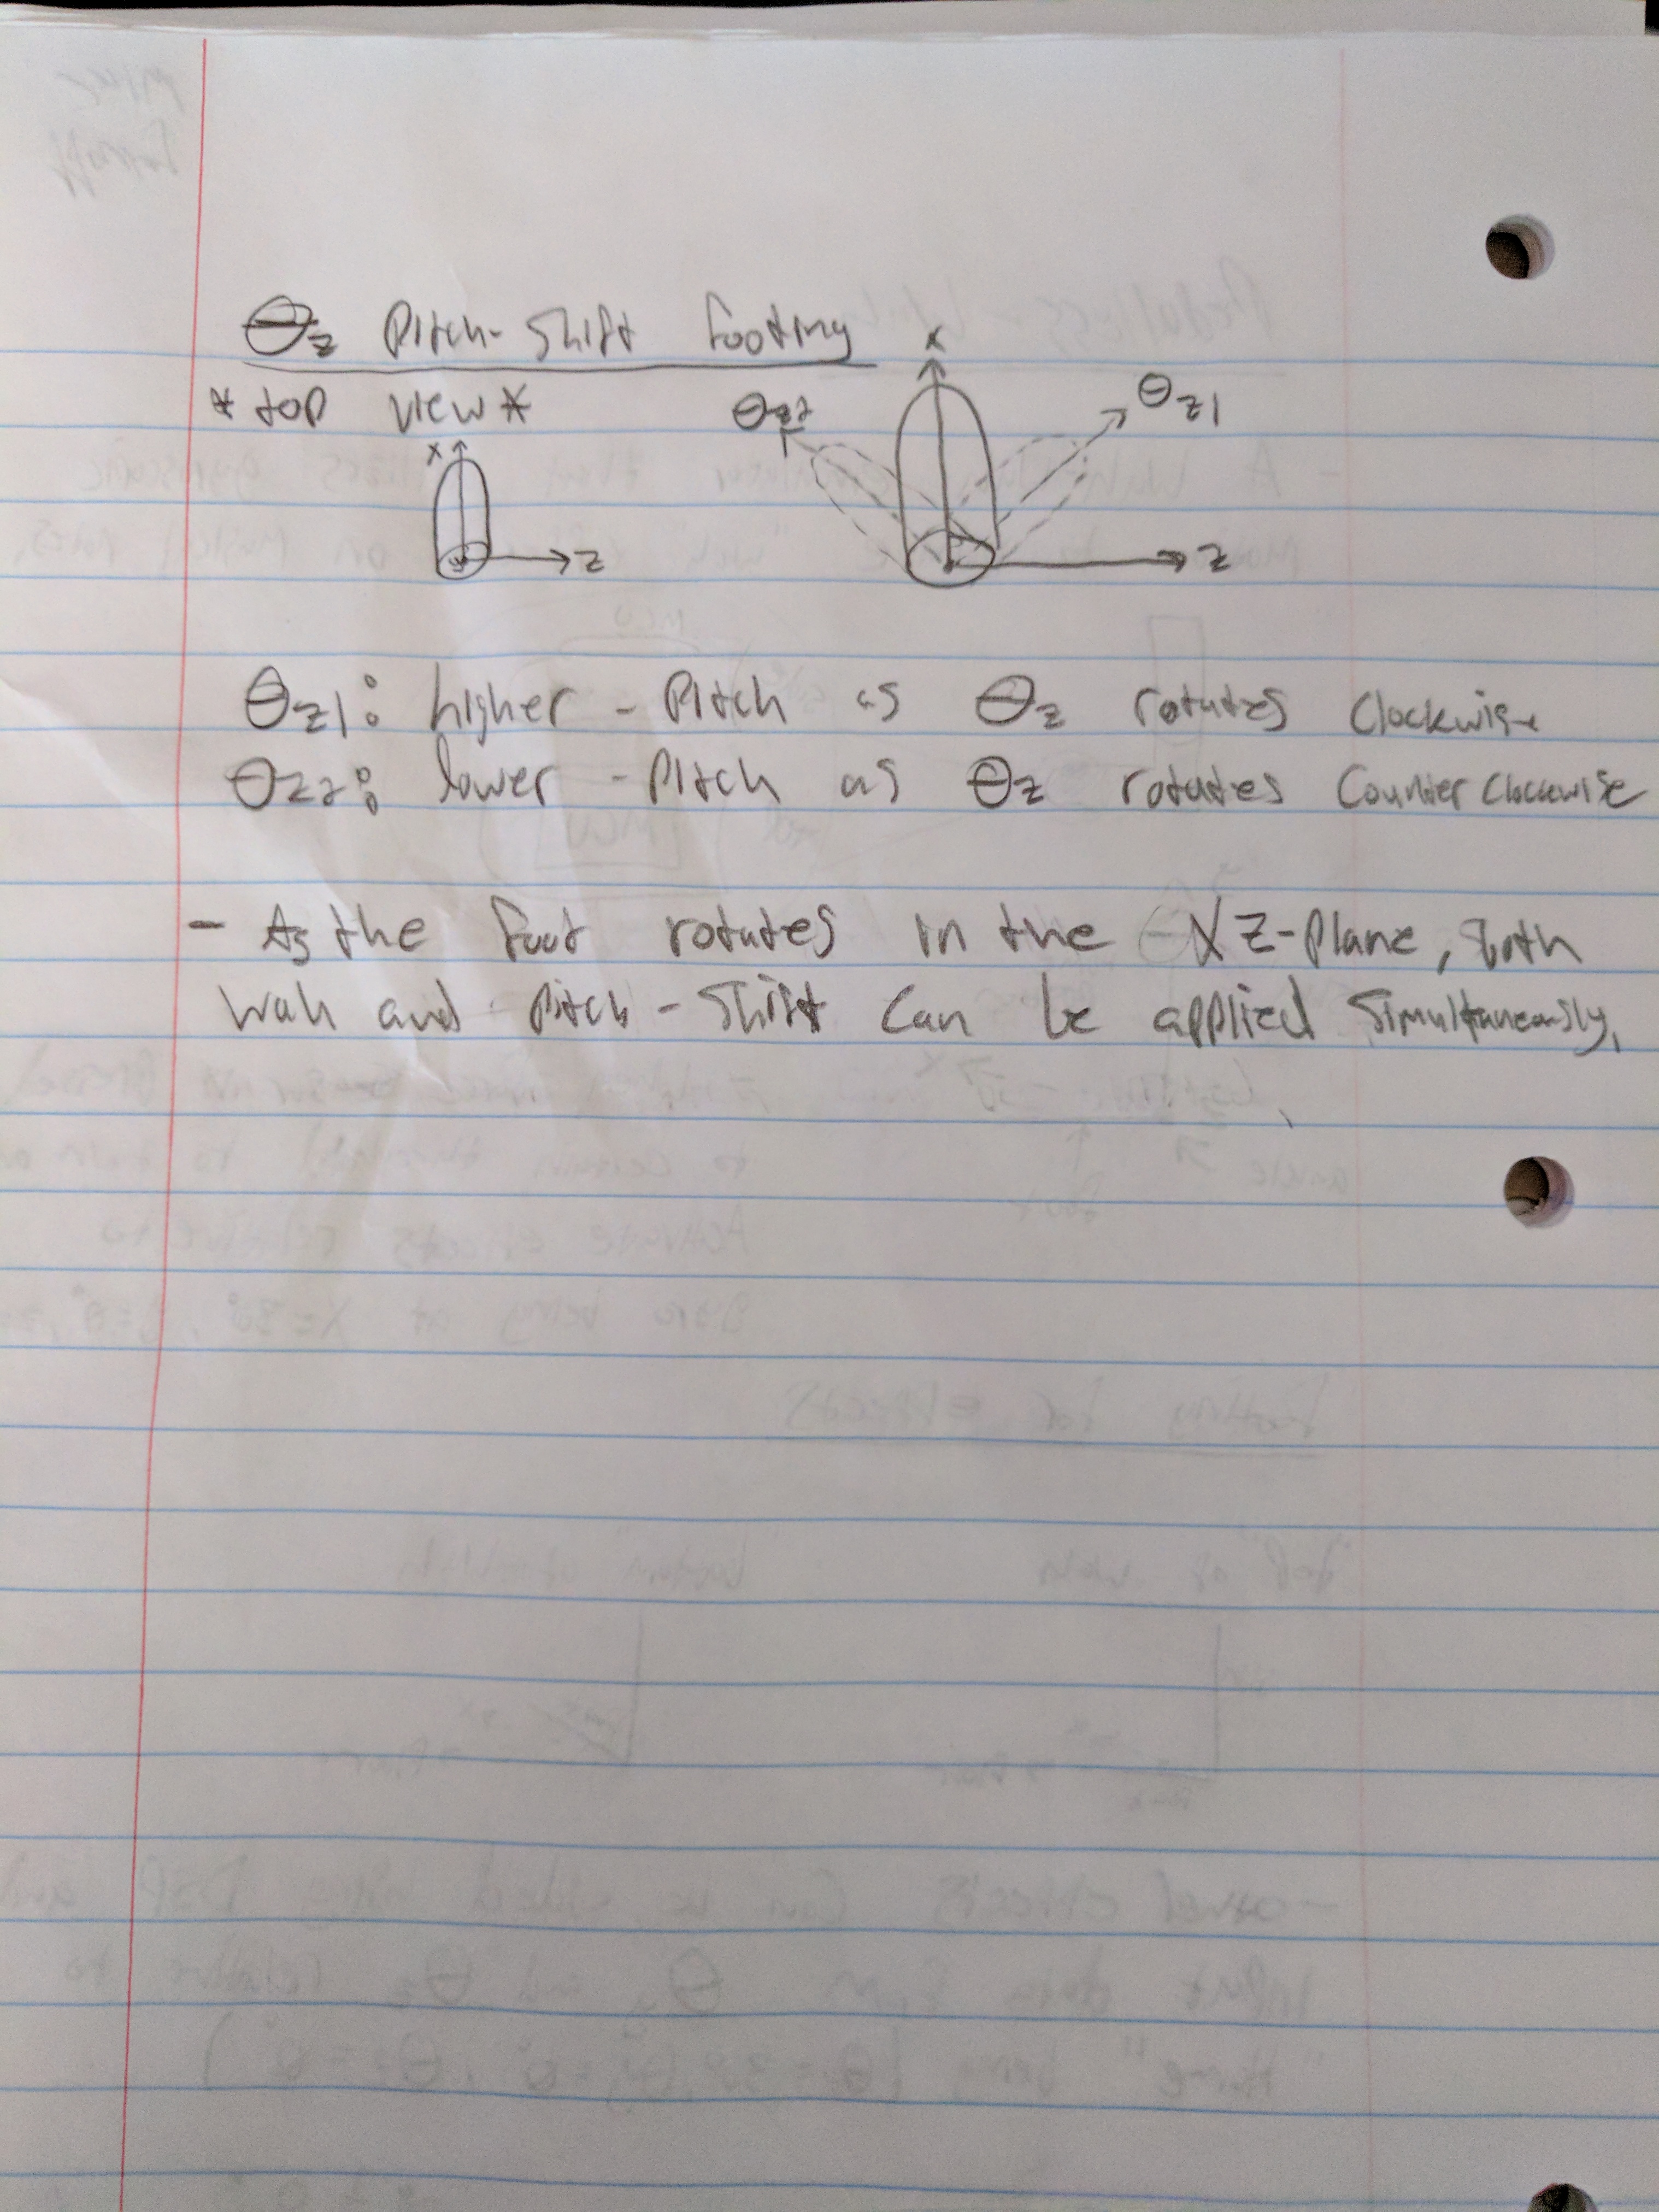 θz Pitch-Shift footing
* top view *
x
θz2
θz1
x
z
z
θz1: higher - Pitch as θz rotates Clockwise
θz2: lower - Pitch as θz rotates Counter Clockwise
- As the foot rotates in the XZ-Plane, both
wah and Pitch-Shift Can be applied Simultaneously.